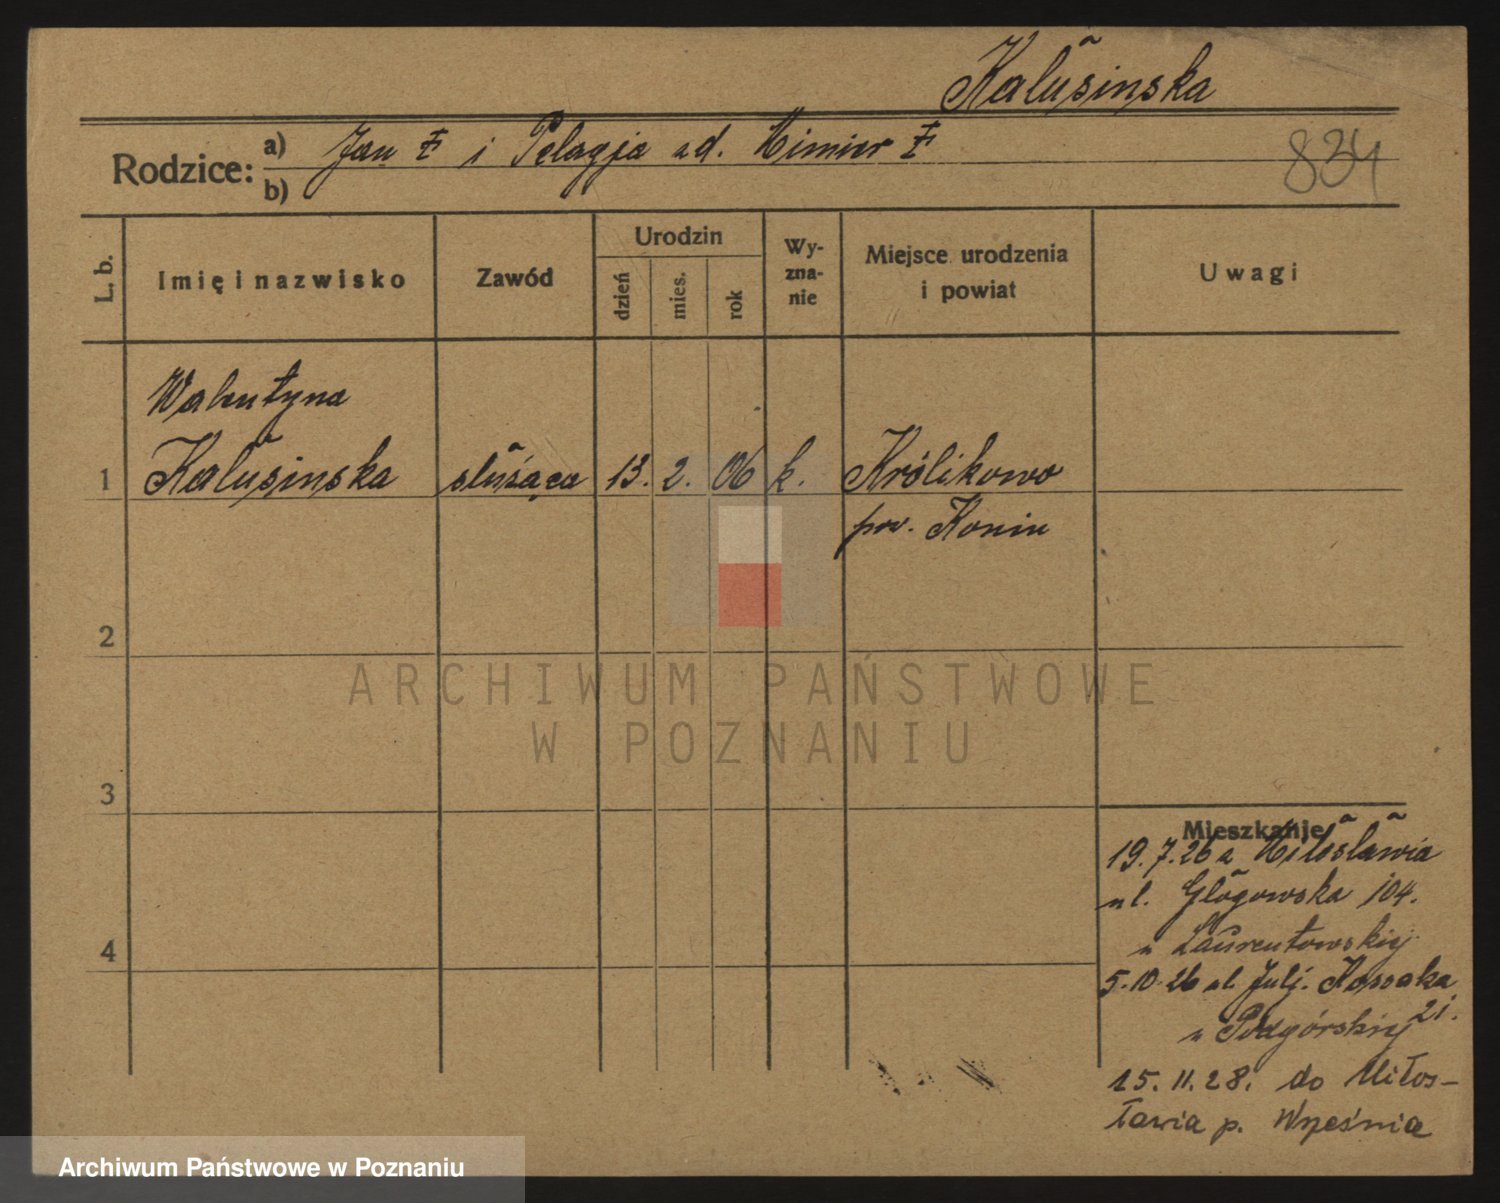 Kałusinska
Rodzice: a) Jan ‡ i Pelagja ud. Mimier ‡
b)
834
L. b.
Imię i nazwisko
Zawód
Urodzin
dzień
mies.
rok
Wy-
zna-
nie
Miejsce urodzenia
i powiat
Uwagi
Walentyna
1 Kałusinska służąca 13. 2. 06 k. Królikowo
pow. Konin
2
3
4
Mieszkanie
19.7.26 z Miłosławia
ul. Głogowska 104.
u Laurentowskiej
5.10.26 ul. Julj. Kossaka
21.
u Podgórskiej
15.11.28. do Miłos-
ławia p. Września
ARCHIWUM PAŃSTWOWE
W POZNANIU
Archiwum Państwowe w Poznaniu